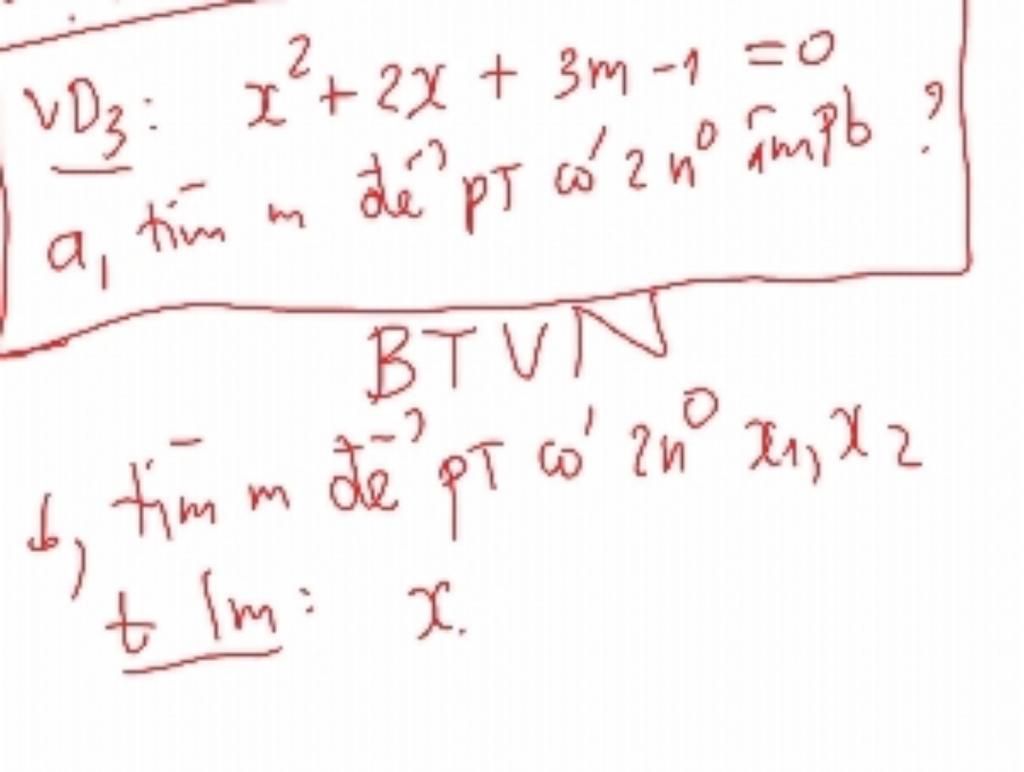 VD3: x² + 2x + 3m - 1 = 0
a, tìm m để PT có 2 n⁰ âm pb ?
BTVN
b, tìm m để PT có 2n⁰ x₁, x₂
t/m: x.